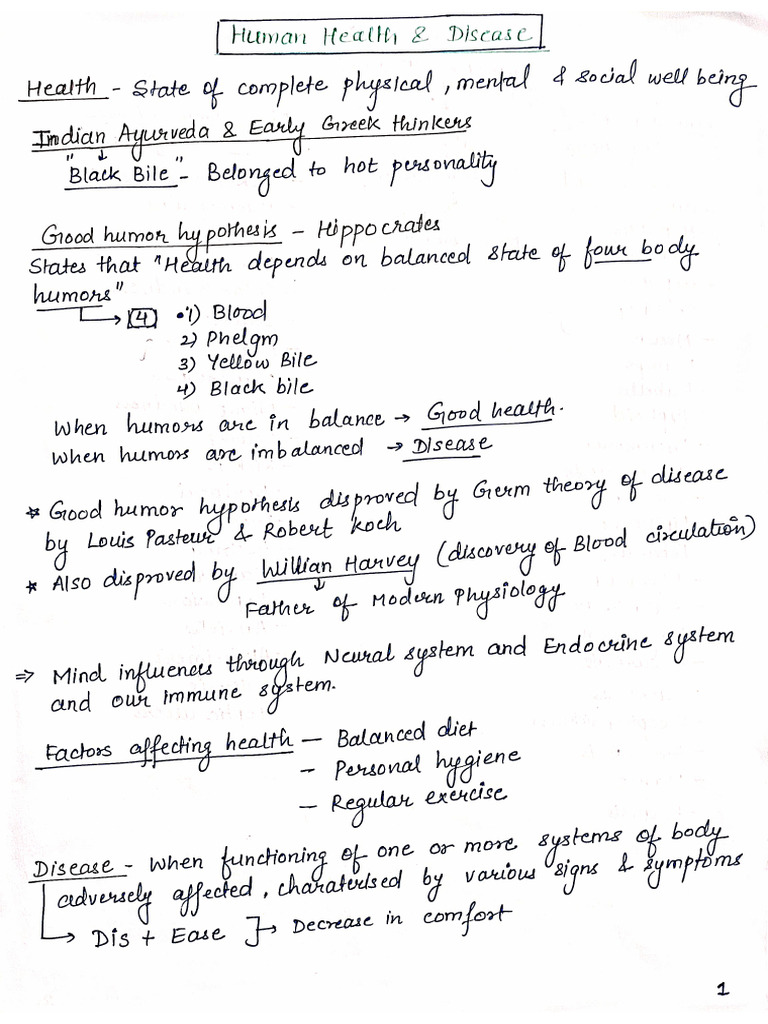 Human Health & Disease
Health - State of complete physical, mental & social well being
Indian Ayurveda & Early Greek thinkers
"Black Bile" - Belonged to hot personality
Good humor hypothesis - Hippocrates
States that "Health depends on balanced state of four body
humors"
→ 4 •1) Blood
2) Phelgm
3) Yellow Bile
4) Black bile
When humors are in balance → Good health.
When humors are imbalanced → Disease
* Good humor hypothesis disproved by Germ theory of disease
by Louis Pasteur & Robert Koch
* Also disproved by Willian Harvey (discovery of Blood circulation)
↓
Father of Modern Physiology
⇒ Mind influences through Neural system and Endocrine system
and our immune system.
Factors affecting health - Balanced diet
- Personal hygiene
- Regular exercise
Disease - When functioning of one or more systems of body
adversely affected, charaterised by various signs & symptoms
→ Dis + Ease ]→ Decrease in comfort
1